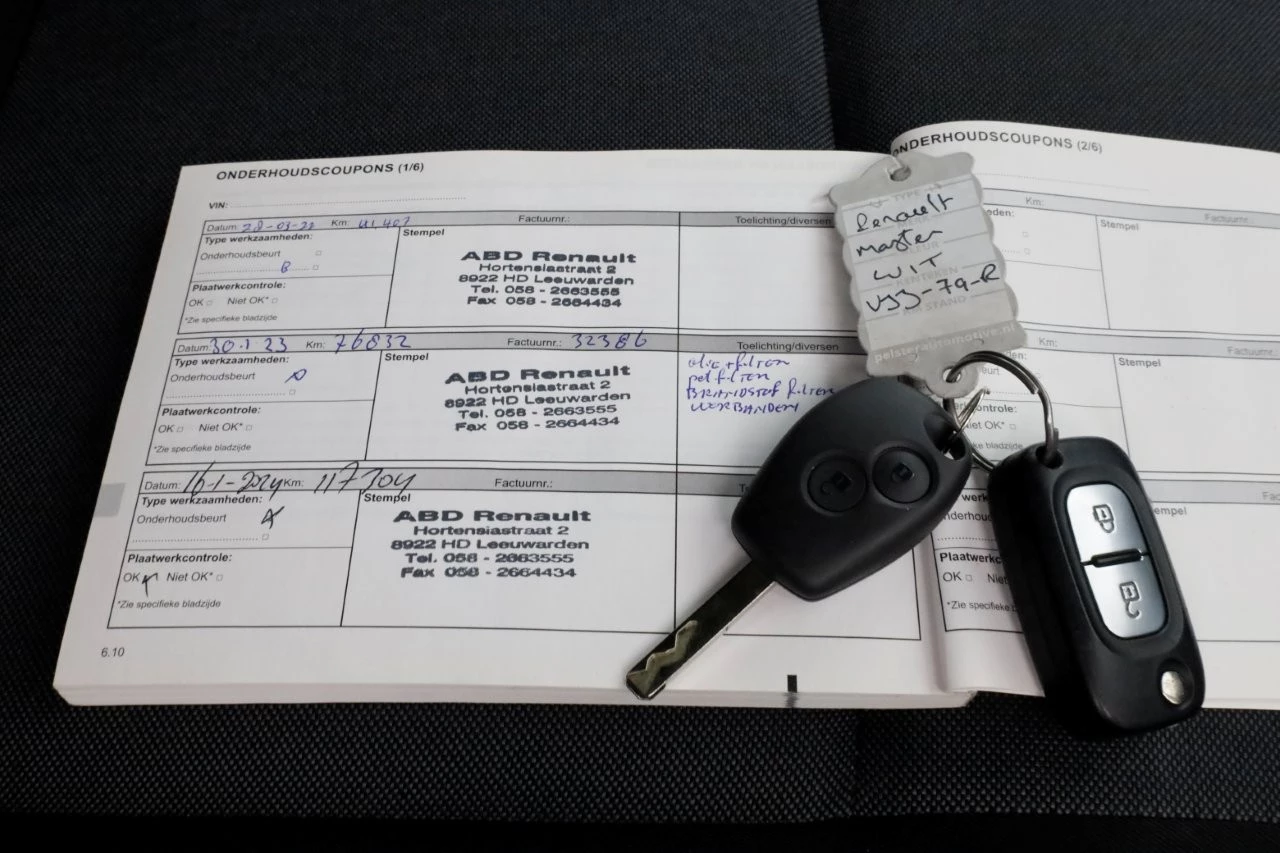 ONDERHOUDSCOUPONS (1/6)
VIN:
Datum: 28-03-22 Km: 41.407 Factuurnr.: Toelichting/diversen
Type werkzaamheden: Stempel
Onderhoudsbeurt
B
Plaatwerkcontrole:
OK Niet OK*
*Zie specifieke bladzijde
ABD Renault
Hortensiastraat 2
8922 HD Leeuwarden
Tel. 058 - 2663555
Fax 058 - 2664434
Datum: 30.1 23 Km: 76832 Factuurnr.: 32386 Toelichting/diversen
Type werkzaamheden: Stempel
Onderhoudsbeurt
Plaatwerkcontrole:
OK Niet OK*
*Zie specifieke bladzijde
ABD Renault
Hortensiastraat 2
8922 HD Leeuwarden
Tel. 058 - 2663555
Fax 058 - 2664434
olie + filter
pol filter
BRANDSTOF filter
Datum: 16-1-2024 Km: 117304 Factuurnr.:
Type werkzaamheden: Stempel
Onderhoudsbeurt
Plaatwerkcontrole:
OK Niet OK*
*Zie specifieke bladzijde
ABD Renault
Hortensiastraat 2
8922 HD Leeuwarden
Tel. 058 - 2663555
Fax 058 - 2664434
6.10
TYPE
Renault
master
WIT
KENTEKEN
VJJ-79-R
KM STAND
pelsterautomotive.nl
ONDERHOUDSCOUPONS (2/6)
Km: Factuurnr.
Stempel
Km: Factuurnr.
Stempel
Niet OK*
specifieke bladzijde
Plaatwerkc
OK Niet
*Zie specifieke b